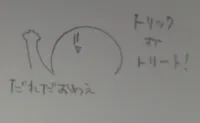 トリック
or
トリート！
だれだおめえ